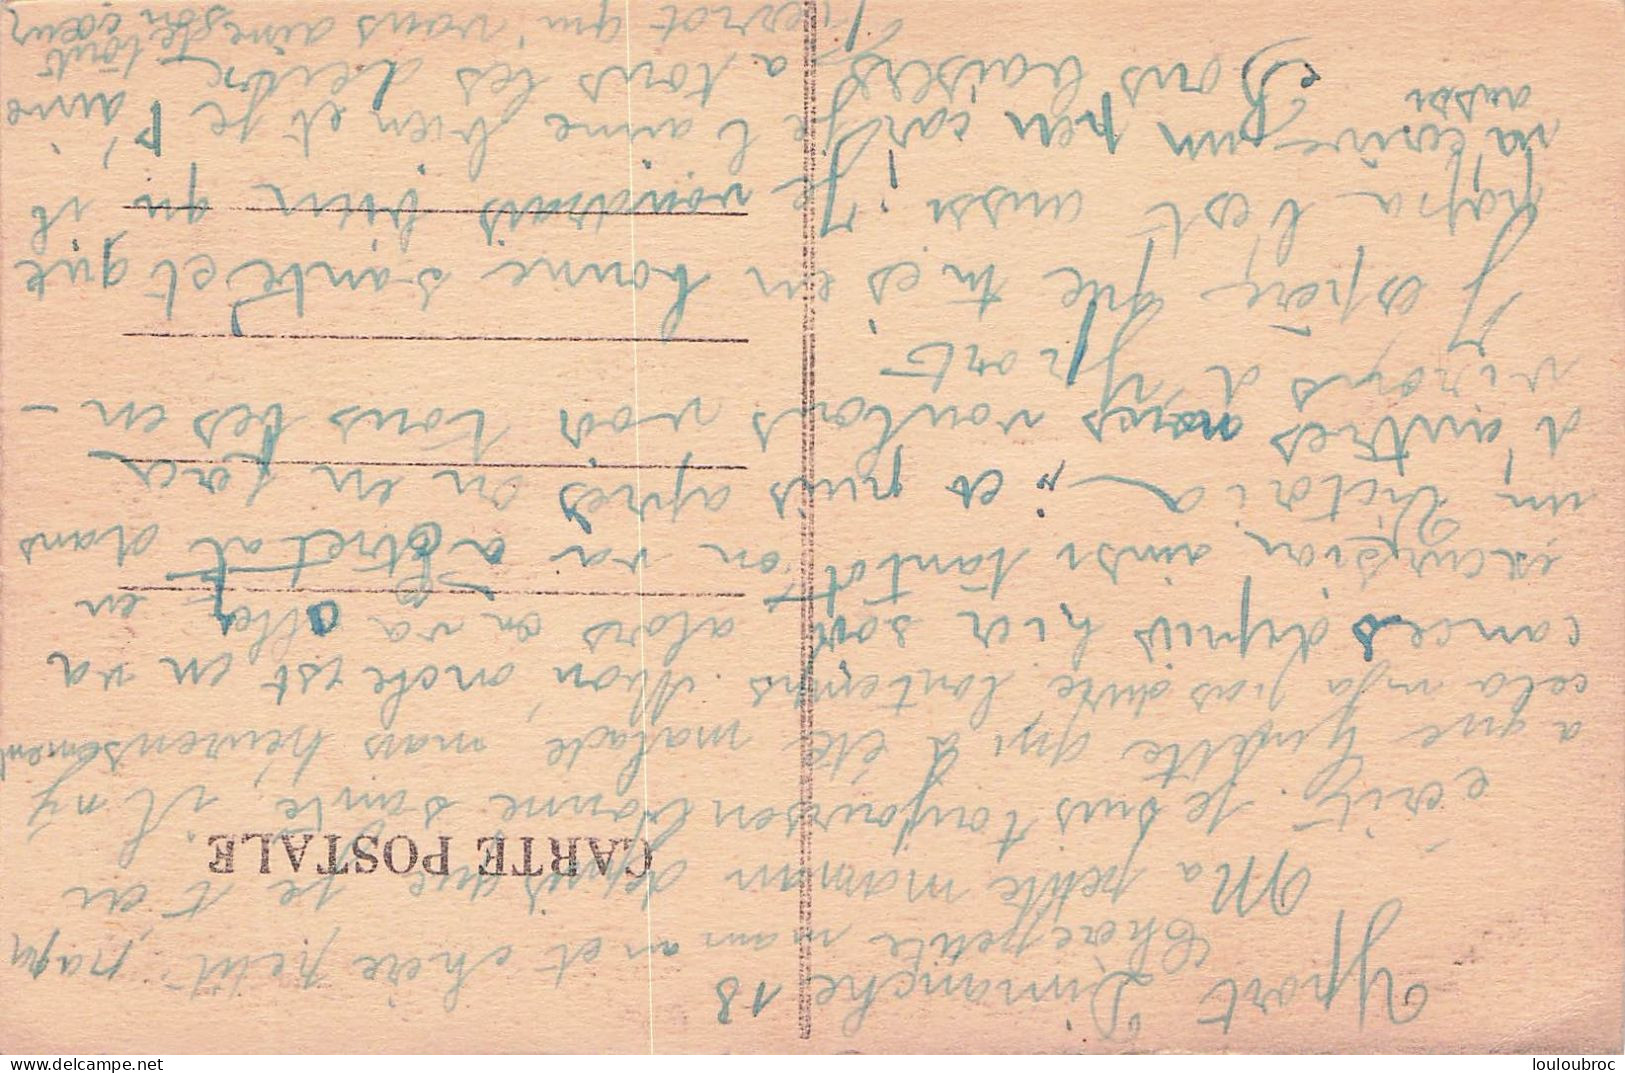 Yport Dimanche 18
Chère petite maman et chère petit papa
Ma petite maman depuis que je t'ai
écrit, je suis toujours en bonne santé, il n'y
a que Ginette qui a été malade mais heureusement
cela n'a pas duré lontemps. Mon oncle est en va
cances depuis hier soir alors on va aller en
excursion ainsi tantôt on va à Etretat dans
un, Victoria, et puis après on en fera
d'autres nous voulons voir tous les en-
virons d'Yport
J'espère que tu es en bonne santé et que
papa l'est aussi. Je voudrais bien qu'il
m'écrive un peu car je l'aime bien et je t'aime
aussi
Bons baisers à tous les deux
Pierrot qui vous aime de tout son cœur
CARTE POSTALE
louloubroc